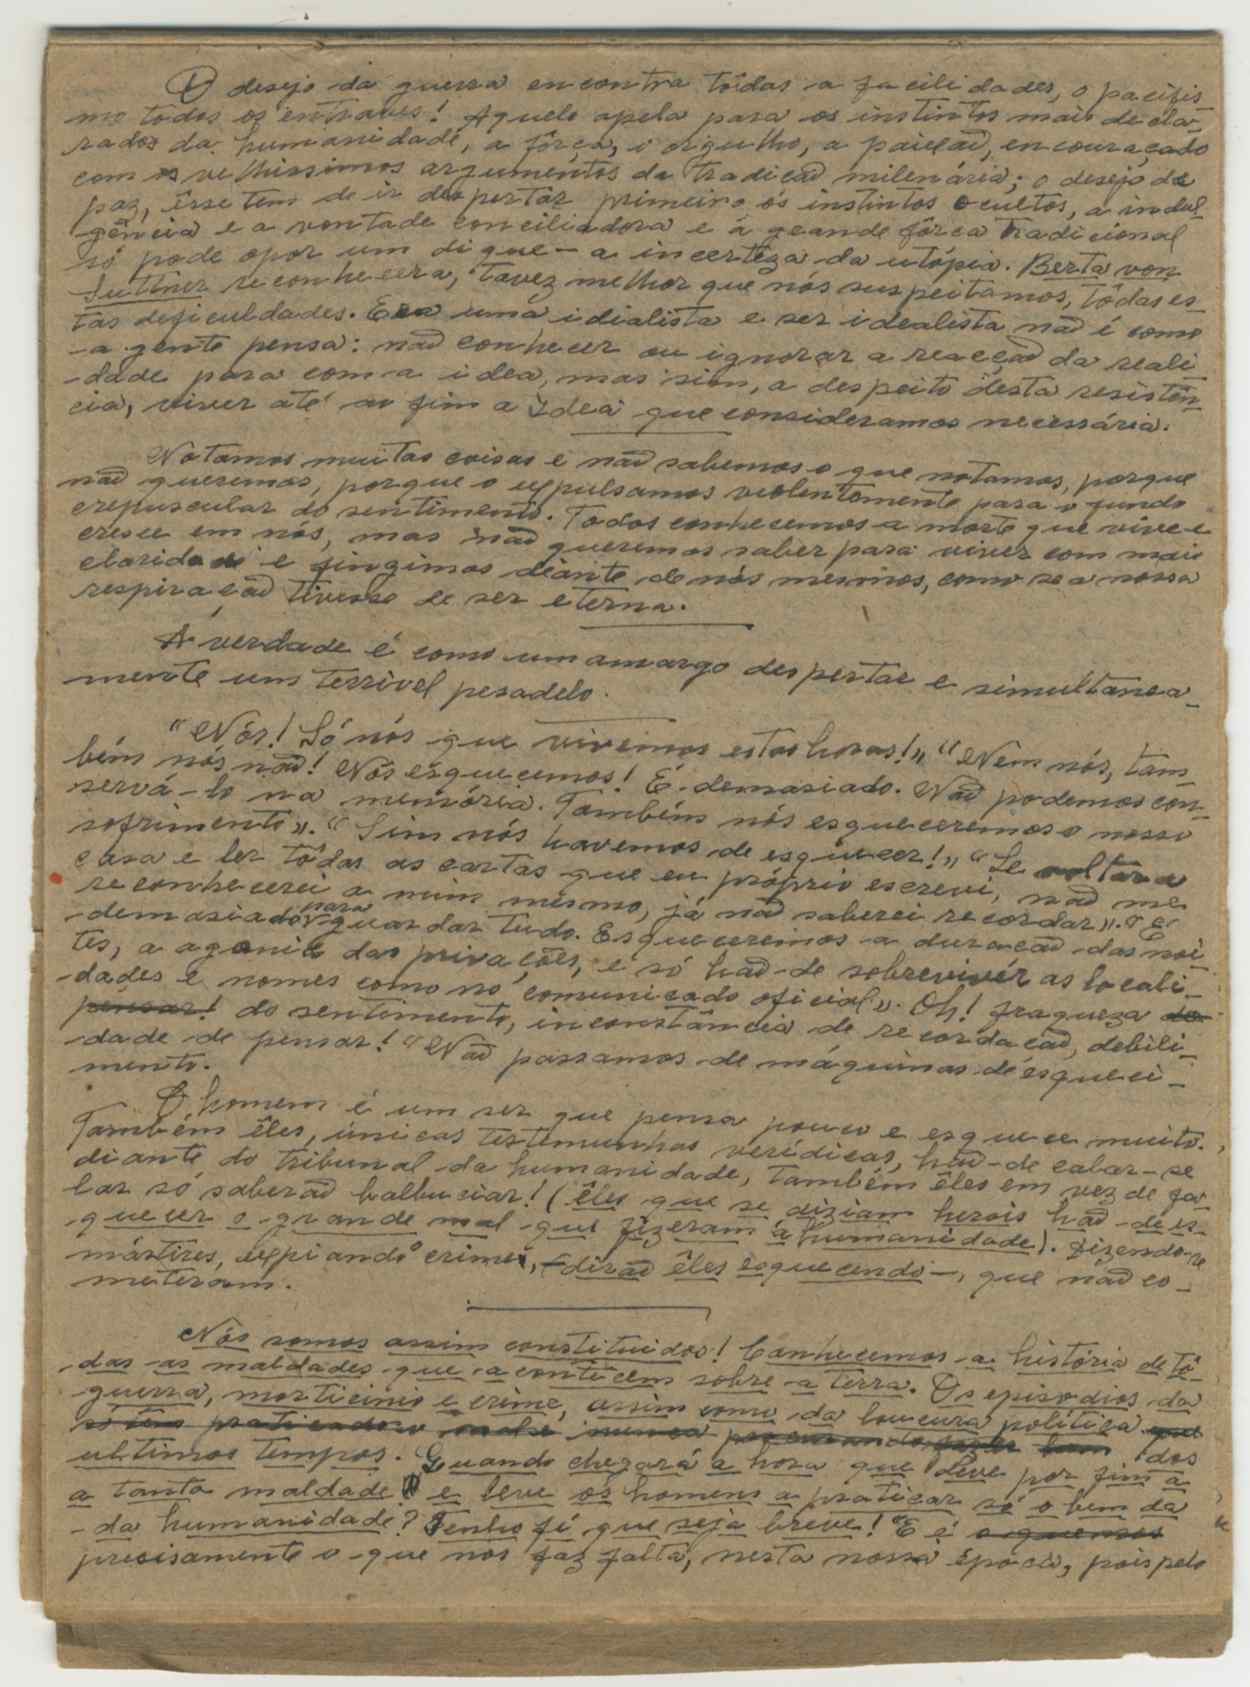 O desejo da guerra encontra tôdas a facilidades, o pacifis
mo todos os entraves! Aquele apela para os instintos mais decla-
rados da humanidade, a fôrça, o orgulho, a paixão, encouraçado
com os velhissimos argumentos da tradição milenária; o desejo da
paz, êsse tem de ir despertar primeiro os instintos ocultos, a indul-
gência e a vontade conciliadora e á grande fôrça tradicional
só pode opor um dique - a incertêza da utópia. Berta von
Suttner reconhecera, tavez melhor que nós suspeitamos, tôdas es-
tas deficuldades. Era uma idialista e ser idealista não é como
a gente pensa: não conhecer ou ignorar a reacção da reali
dade para com a idea, mas sim, a despeito desta resistên-
cia, viver até ao fim a idea que consideramos necessária.
Notamos muitas coisas e não sabemos o que notamos, porque
não queremos, porque o expulsamos violentamente para o fundo
crepuscular do sentimento. Todos conhecemos a morte que vive e
cresce em nós, mas não queremos saber para viver com mais
claridade e fingimos diante de nós mesmos, como se a nossa
respiração tivesse de ser eterna.
A verdade é como um amargo despertar e simultanea-
mente um terrivel pesadelo.
"Nós! Só nós que vivemos estas horas!» "Nem nós, tam
bém nós não! Nós esquecemos! É demasiado. Não podemos con-
servá-lo na memória. Também nós esqueceremos o nosso
sofrimento». "Sim nós havemos de esquecer!» "Se voltar a
casa e ler tôdas as cartas que eu próprio escrevi, não me
reconhecerei a mim mesmo, já não saberei recordar». "É
demasiado para guardar tudo. Esqueceremos a duração das noi-
tes, a agonia das privações, e só hão-de sobreviver as locali-
dades e nomes como no comunicado oficial». Oh! fraqueza do
pensar! do sentimento, inconstância de recordação, debili-
dade de pensar! "Não passamos de máquinas de esqueci-
mento.
O homem é um ser que pensa pouco e esquece muito.
Também êles, únicas testemunhas verídicas, hão-de calar-se
diante do tribunal da humanidade, também êles em vez de fa
lar só saberão balbuciar! (êles que se diziam herois hão-de es-
quecer o grande mal que fizeram á humanidade). Dizendo-se
mártires, expiando crimes, - dirão êles esquecendo -, que não co-
meteram.
Nós somos assim constituidos! Conhecemos a história de tô-
das as maldades que acontecem sobre a terra. Os episodios da
guerra, morticinio e crime, assim como da loucura política que
só têm praticado o mal e nunca procurando fazer bem dos
ultimos tempos. Quando chegará a hora que leve por fim a
a tanta maldade e leve os homens a praticar só o bem da
da humanidade? Tenho fé que seja breve! "E é
precisamente o que nos faz falta, nesta nossa época, pois pelo